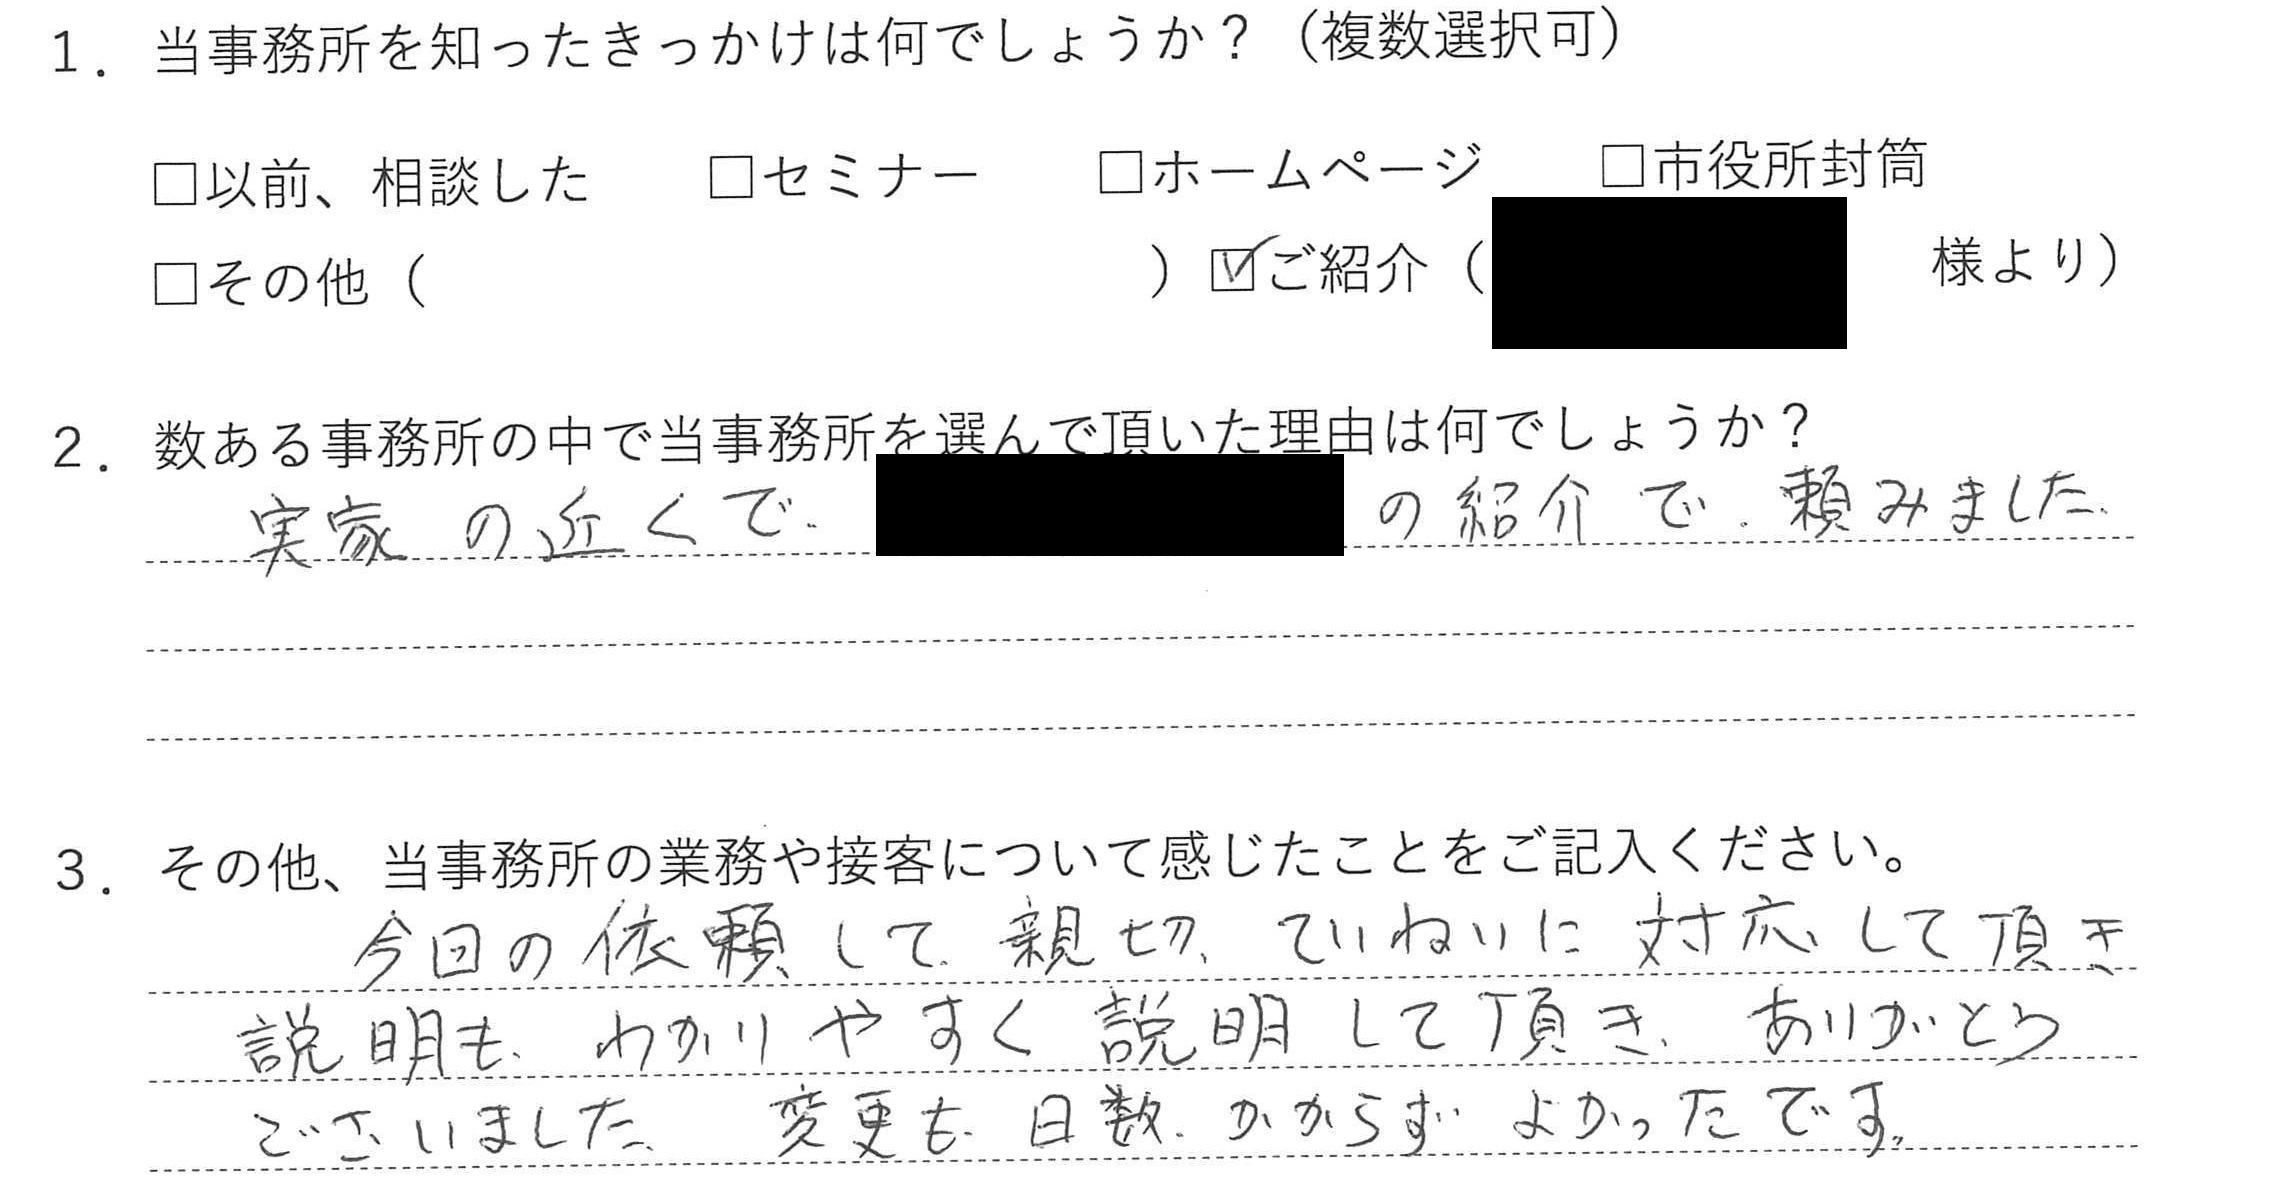 1. 当事務所を知ったきっかけは何でしょうか？（複数選択可）
□以前、相談した □セミナー □ホームページ □市役所封筒
□その他（ ）☑ご紹介（ 様より）
2. 数ある事務所の中で当事務所を選んで頂いた理由は何でしょうか？
実家の近くで、 の紹介で、頼みました。
3. その他、当事務所の業務や接客について感じたことをご記入ください。
今回の依頼して、親切、ていねいに対応して頂き
説明も、わかりやすく説明して頂き、ありがとう
ございました、 変更も、日数、かからず よかったです。